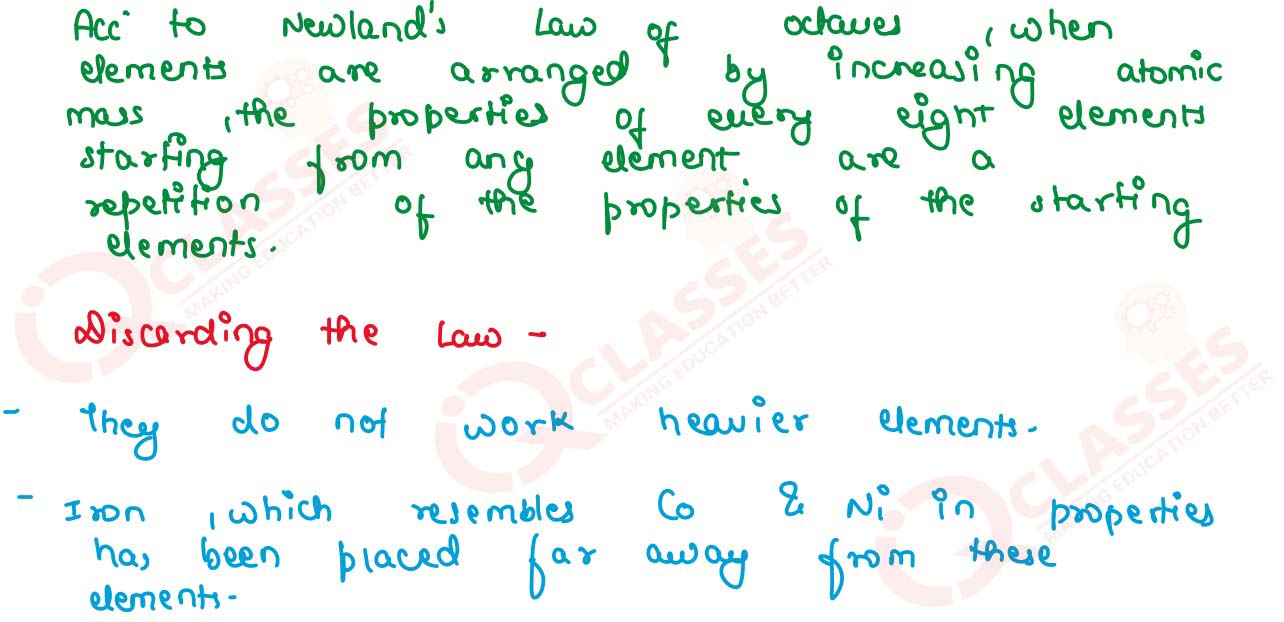 Acc to Newland's Law of octaves, when
elements are arranged by increasing atomic
mass, the properties of every eight elements
starting from any element are a
repetition of the properties of the starting
elements.
Discarding the Law -
- They do not work heavier elements.
- Iron, which resembles Co & Ni in properties
has been placed far away from these
elements.
CLASSES
MAKING EDUCATION BETTER
CLASSES
MAKING EDUCATION BETTER
CLASSES
MAKING EDUCATION BETTER